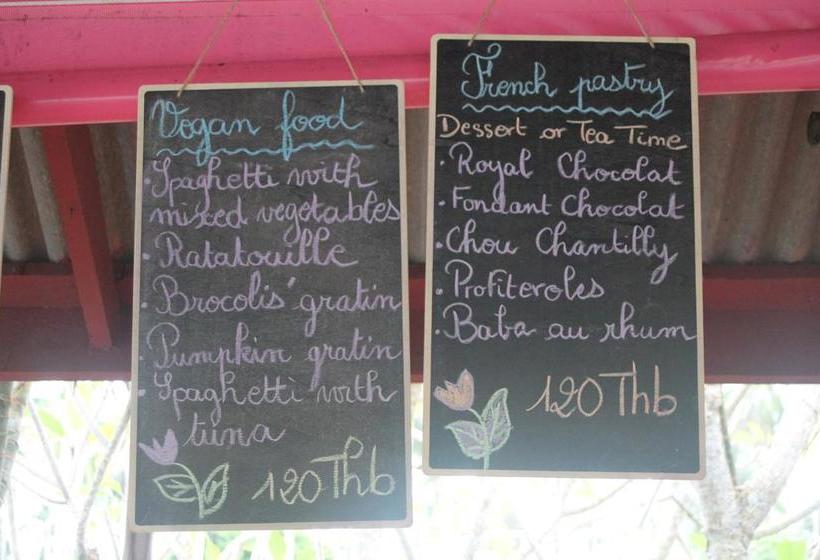 Vegan food
• Spaghetti with
mixed vegetables
• Ratatouille
• Brocolis' gratin
• Pumpkin gratin
• Spaghetti with
tuna
120 Thb
French pastry
Dessert or Tea Time
• Royal Chocolat
• Fondant Chocolat
• Chou Chantilly
• Profiteroles
• Baba au rhum
120 Thb